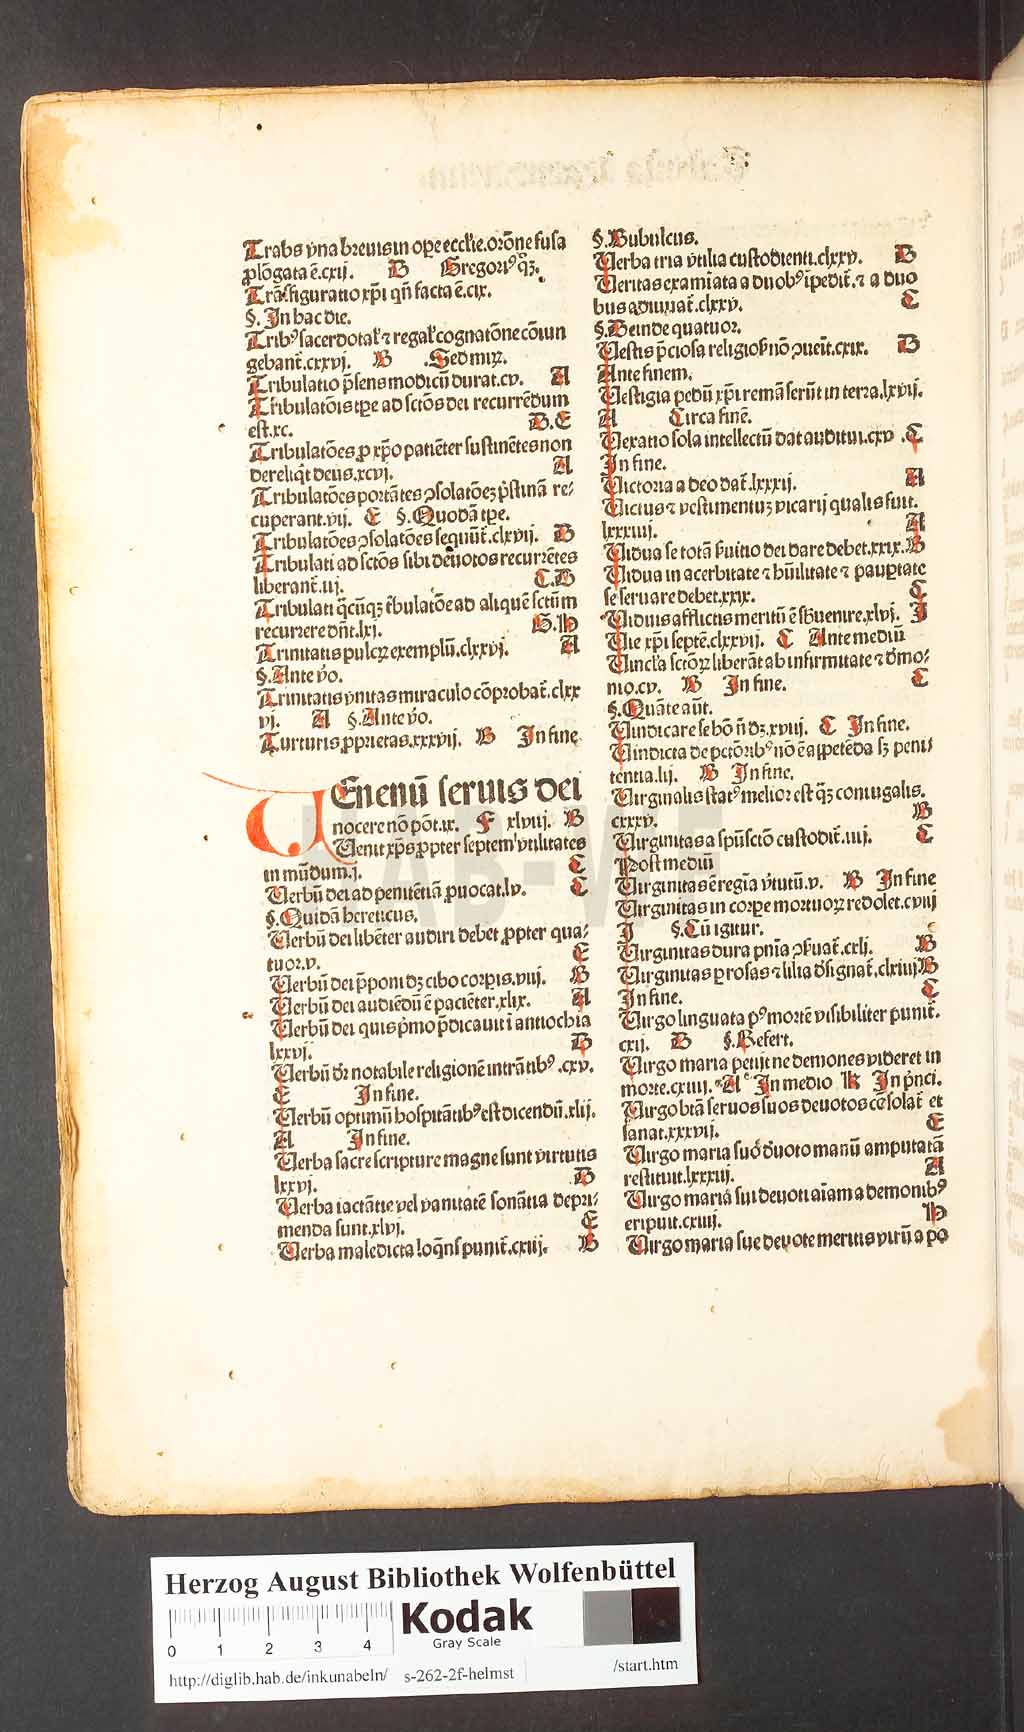 Trabs vna breuis in ope eccl'ie. orōne fusa
ꝓlōgata ē. cxij. B Gregoriꝰ qꝫ.
Trāsfiguratio xp̄i qn̄ facta ē. cix.
§. In hac die.
Tribꝰ sacerdotal' ⁊ regal' cognatōne cōiun
gebant̄. cxxvj. B Sed mirꝝ.
Tribulatio p̄sens modicū durat. cv. A
Tribulatōis tꝑe ad sctōs dei recurrēdum
est. xc. B. E
Tribulatōes ꝓ xp̄o patiēter sustinētes non
dereliq̄t deus. xcvj. A
Tribulatōes portātes ꝯsolatōeꝫ p̄stinā re⸗
cuperant. vij. E §. Quodā tꝑe.
Tribulatōes ꝯsolatōes sequūt̄. clxvij. B
Tribulati ad sctōs sibi deuotos recurrētes
liberant̄. iij. C. D
Tribulati q̄cūqꝫ tˀbulatōe ad aliquē sctūm
recurrere dn̄t. lxj. G. H
Trinitatis pulcꝝ exemplū. clxxvj. A
§. Ante v̄o.
Trinitatis vnitas miraculo cōprobat̄. clxx
vj. A §. Ante v̄o.
Turturis ꝓprietas. xxxvij. B In fine
VEnenū seruis dei
nocere nō pōt. ix. F xlviij. B
Uenit xp̄s ꝓpter septem vˀtilitates
in mūdum. j. C
Uerbū dei ad penitētiā ꝓuocat. lv. C
§. Quidā hereticus.
Uerbū dei libēter audiri debet ꝓpter qua⸗
tuor. v. E
Uerbū dei p̄poni dꝫ cibo corpis. viij. B
Uerbū dei audiēdū ē paciēter. xlix. A
Uerbū dei quis p̄mo p̄dicauit ī antiochia
lxxvj. B
Uerbū dr̄ notabile religionē intrātibꝰ. cxv.
E In fine.
Uerbū optimū hospitātibꝰ est dicendū. xlij.
A In fine.
Uerba sacre scripture magne sunt virtutis
lxxvj. B
Uerba iactātie vel vanitatē sonātia depri⸗
menda sunt. xlvj. E
Uerba maledicta loq̄ns punit̄. cxiij. B
§. Bubulcus.
Uerba tria vˀtilia custodienti. clxxv. B
Ueritas examīata a duobꝰ īpedit̄. ⁊ a duo
bus adiuuat̄. clxxv. C
§. Deinde quatuor.
Uestis p̄ciosa religioso nō ꝯuenit. cxix. B
Ante finem.
Uestigia pedū xp̄i remāserūt in terra. lxvij.
A Circa finē.
Uexatio sola intellectū dat auditui. cxv. C
In fine.
Uictoria a deo dat̄. lxxxij. A
Uictus ⁊ vestimentuꝫ vicarij qualis fuit.
lxxxiiij. A
Uidua se totā sˀuitio dei dare debet. xxix. B
Uidua in acerbitate ⁊ hūilitate ⁊ paupˀtate
se seruare debet. xxix. C
Uiduis afflictis meritū ē sbˀuenire. xlvj. I
Uie xp̄i septē. clxxvij. C Ante mediū
Uincl'a sctōꝝ liberāt ab infirmitate ⁊ dˀmo⸗
nio. cv. B In fine. C
§. Quāte aūt.
Uindicare se hō n̄ dꝫ. xviij. C In fine.
Uindicta de pctōribꝰ nō ē appetēda sꝫ peni⸗
tentia. lij. B In fine.
Uirginalis statꝰ melior est qꝫ coniugalis.
cxxxv. B
Uirginitas a spūsctō custodit̄. iiij. C
Post mediū
Uirginitas ē regīa vˀtutū. v. B In fine
Uirginitas in corpe mortuoꝝ redolet. cviij
I §. Cū igitur.
Uirginitas dura pnīa ꝯsˀuat̄. cxlj. B
Uirginitas ꝑ rosas ⁊ lilia dˀsignat̄. clxiiij B
In fine. C
Uirgo linguata pꝰ mortē visibiliter punit̄.
cxij. B §. Refert.
Uirgo maria petijt ne demones videret in
morte. cxiiij. A In medio K In pˀnci.
Uirgo btā seruos suos deuotos cōsolat̄ et
sanat. xxxvij. E
Uirgo maria suo dˀuoto manū amputatā
restituit. lxxxiij. A
Uirgo maria sui deuoti aīam a demonibꝰ
eripuit. cxiiij. H
Uirgo maria sue deuote meritis virū a po
Herzog August Bibliothek Wolfenbüttel
0 1 2 3 4 Kodak
Gray Scale
http://diglib.hab.de/inkunabeln/ s-262-2f-helmst /start.htm
HAB-WF